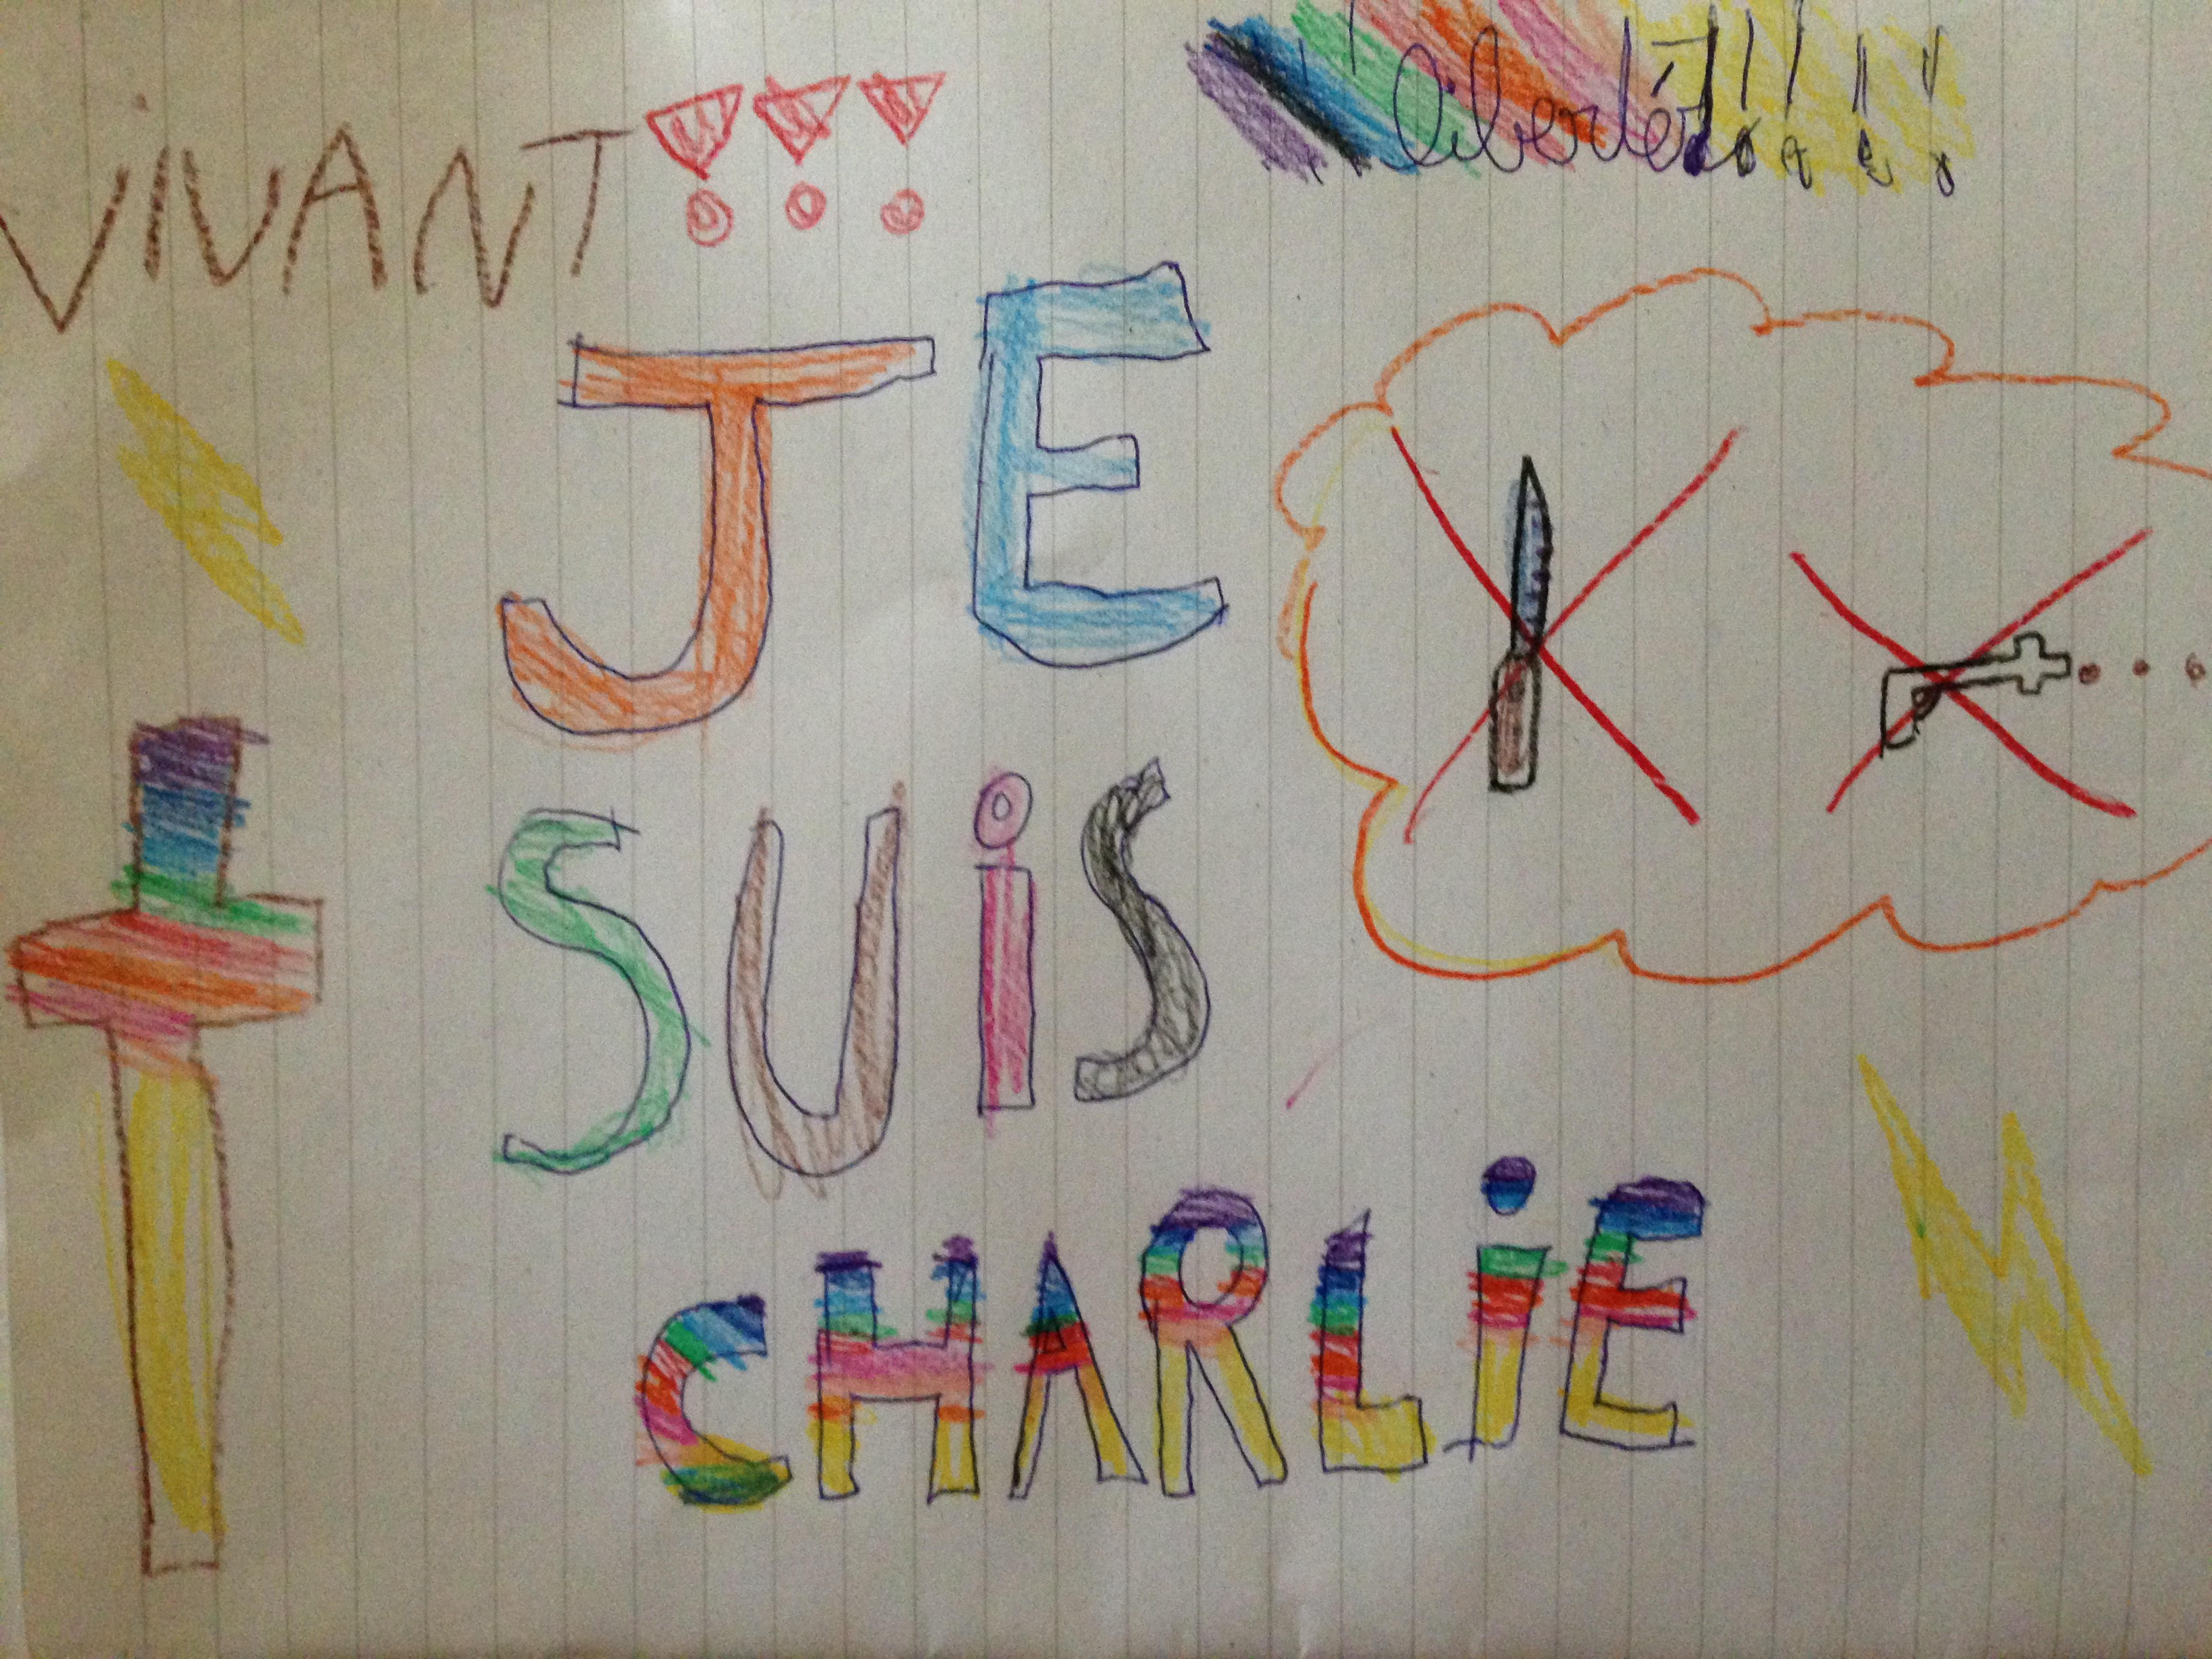 ViVANT!!!
liberté!!!!!
JE
SUiS
CHARLiE